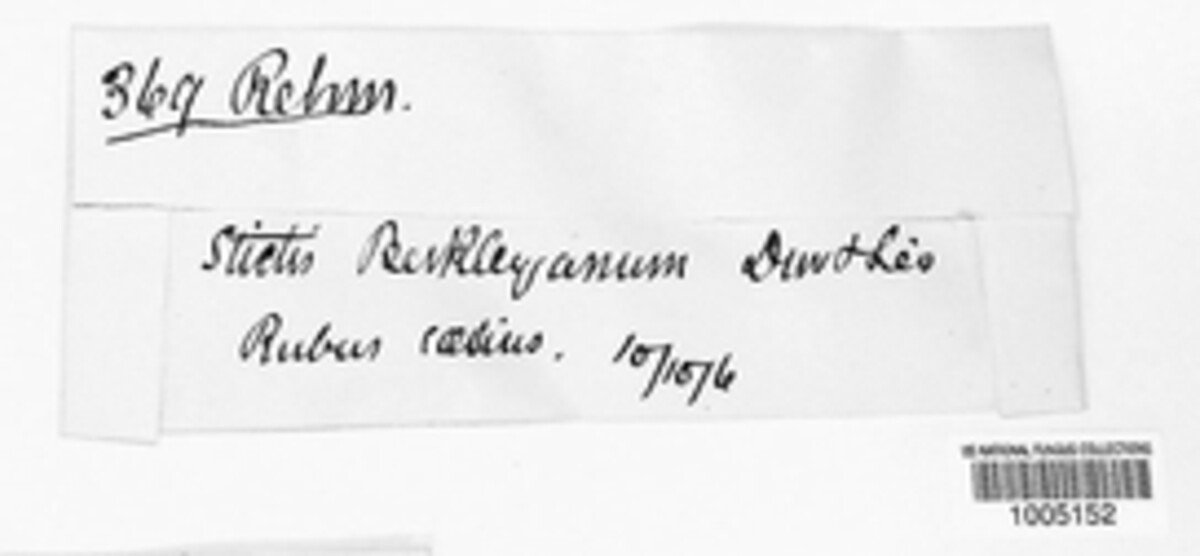 369 Rehm.
Stictis Berkleyanum Dur & Lév
Rubus cæsius. 10/10/6
US NATIONAL FUNGUS COLLECTIONS
1005152